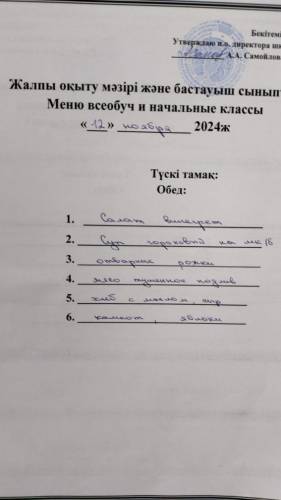 Бекітемі
Утверждаю и.о. директора шк
А.А. Самойлов
Жалпы оқыту мәзірі және бастауыш сынып
Меню всеобуч и начальные классы
«12» ноября 2024ж
Түскі тамақ:
Обед:
1. Салат винегрет
2. Суп гороховый на мк/б
3. отварные рожки
4. мясо тушенное
5. хлеб с маслом, сыр
6. компот, яблоки